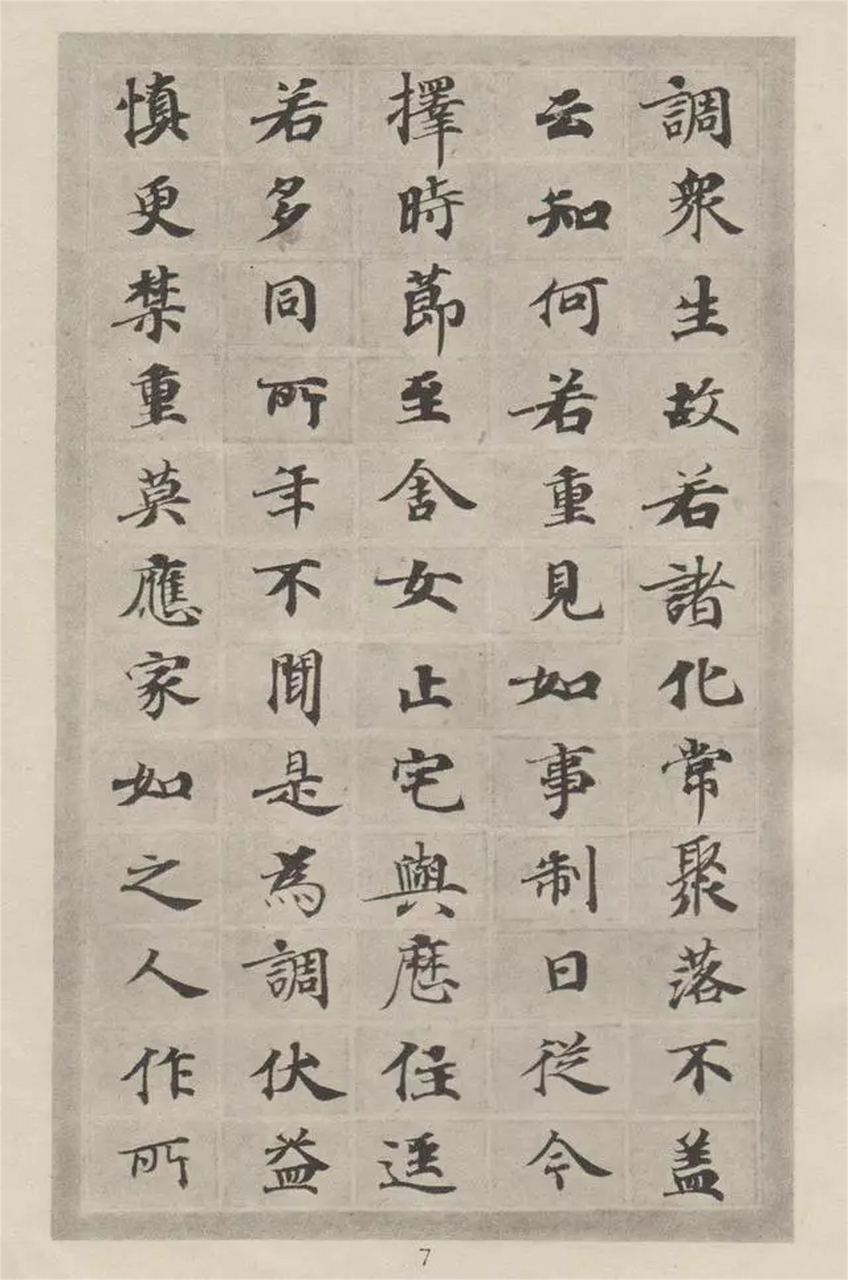 調衆生故若諸化常聚落不盖
云知何若重見如事制日從今
擇時節至舍女止宅與應住逕
若多同所年不聞是為調伏益
慎更禁重莫應家如之人作所
7